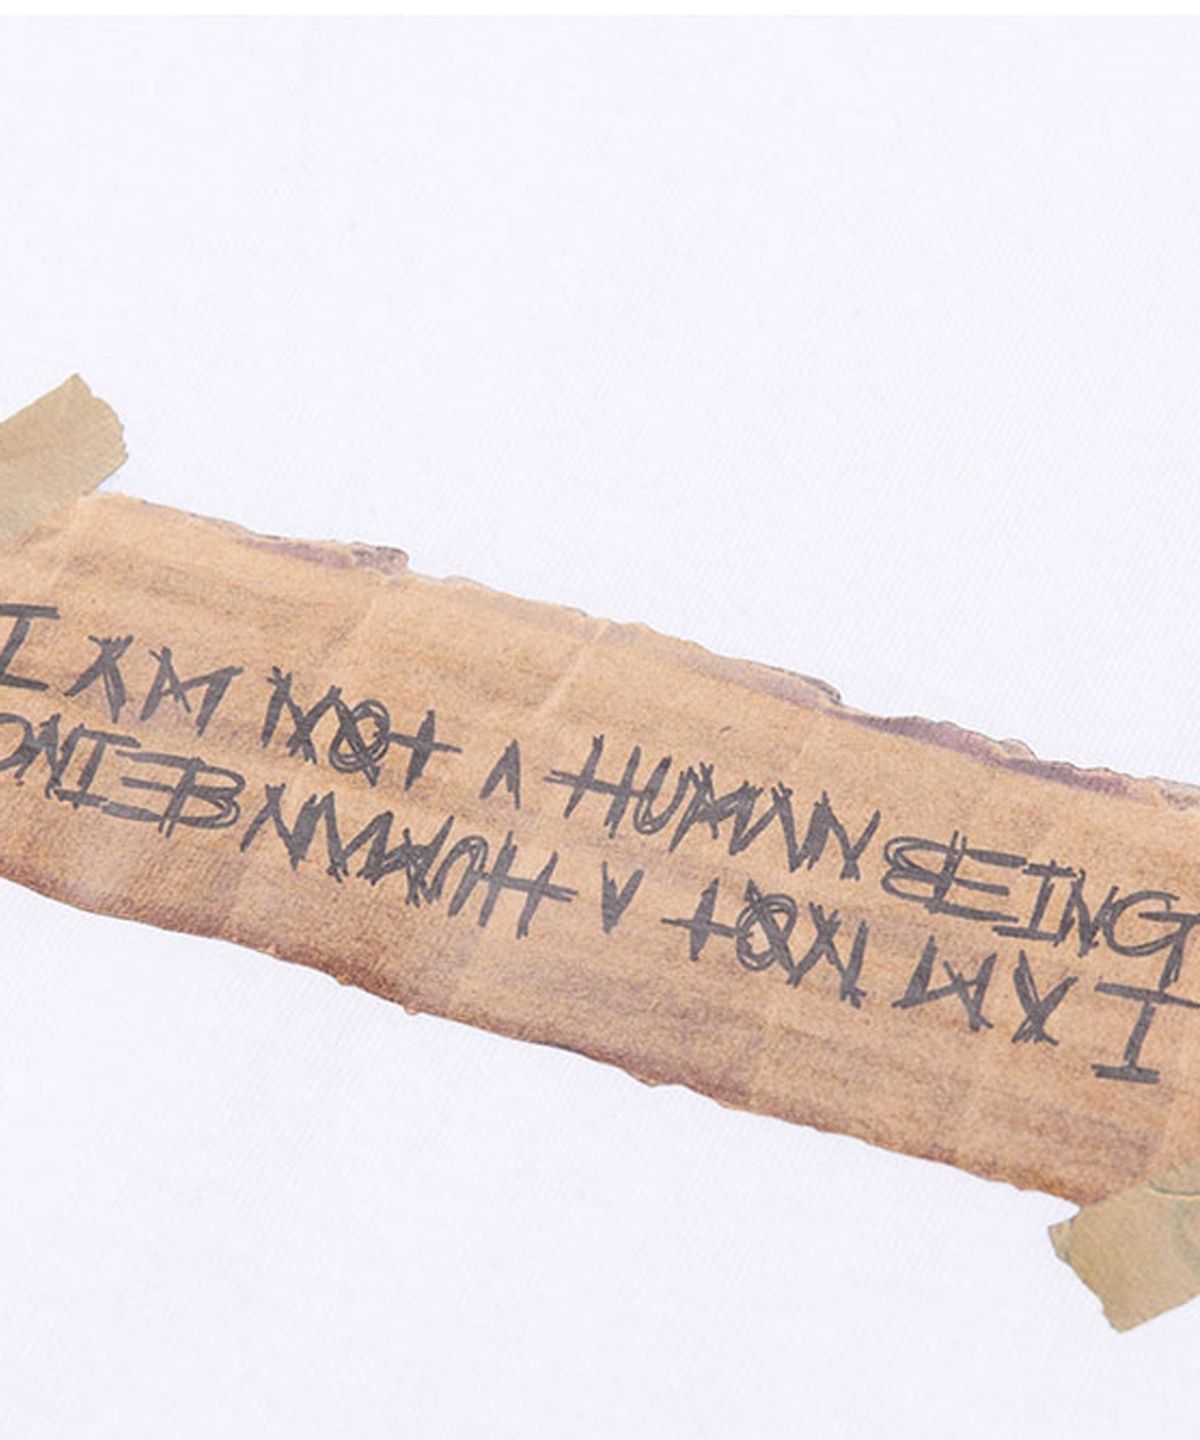 I AM NOT A HUMAN BEING
I AM NOT A HUMAN BEING